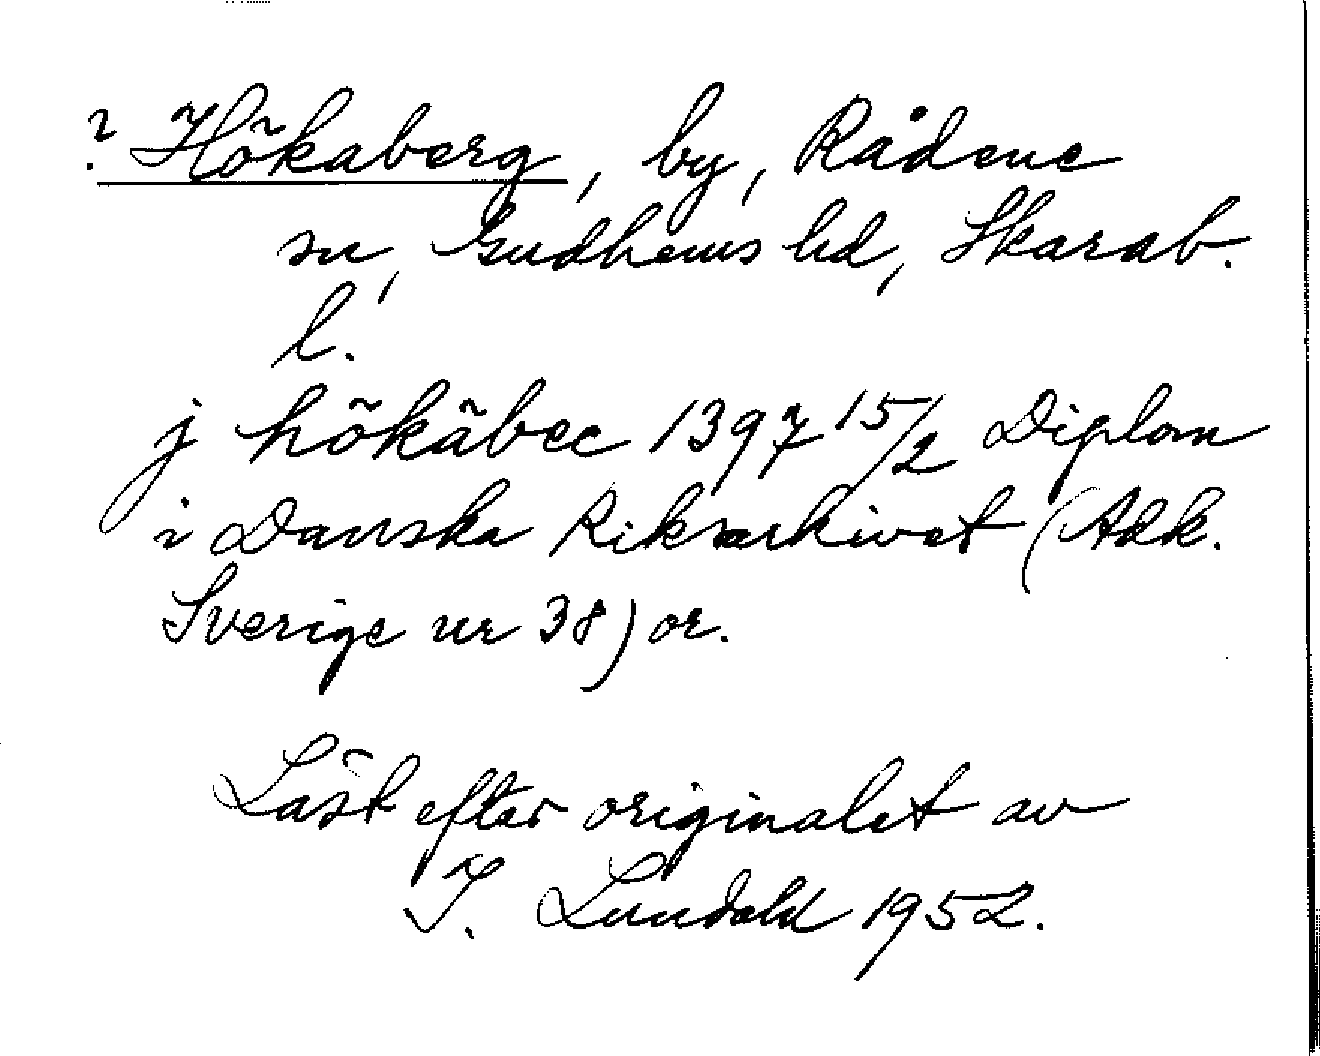 ? Hökaberg, by, Rådene
sn, Gudhems hd, Skarab.
l.
j hökäbec 1397 15/2 Diplom
i Danska Riksarkivet (Adk.
Sverige nr 38) or.
Läst efter originalet av
I. Lundahl 1952.